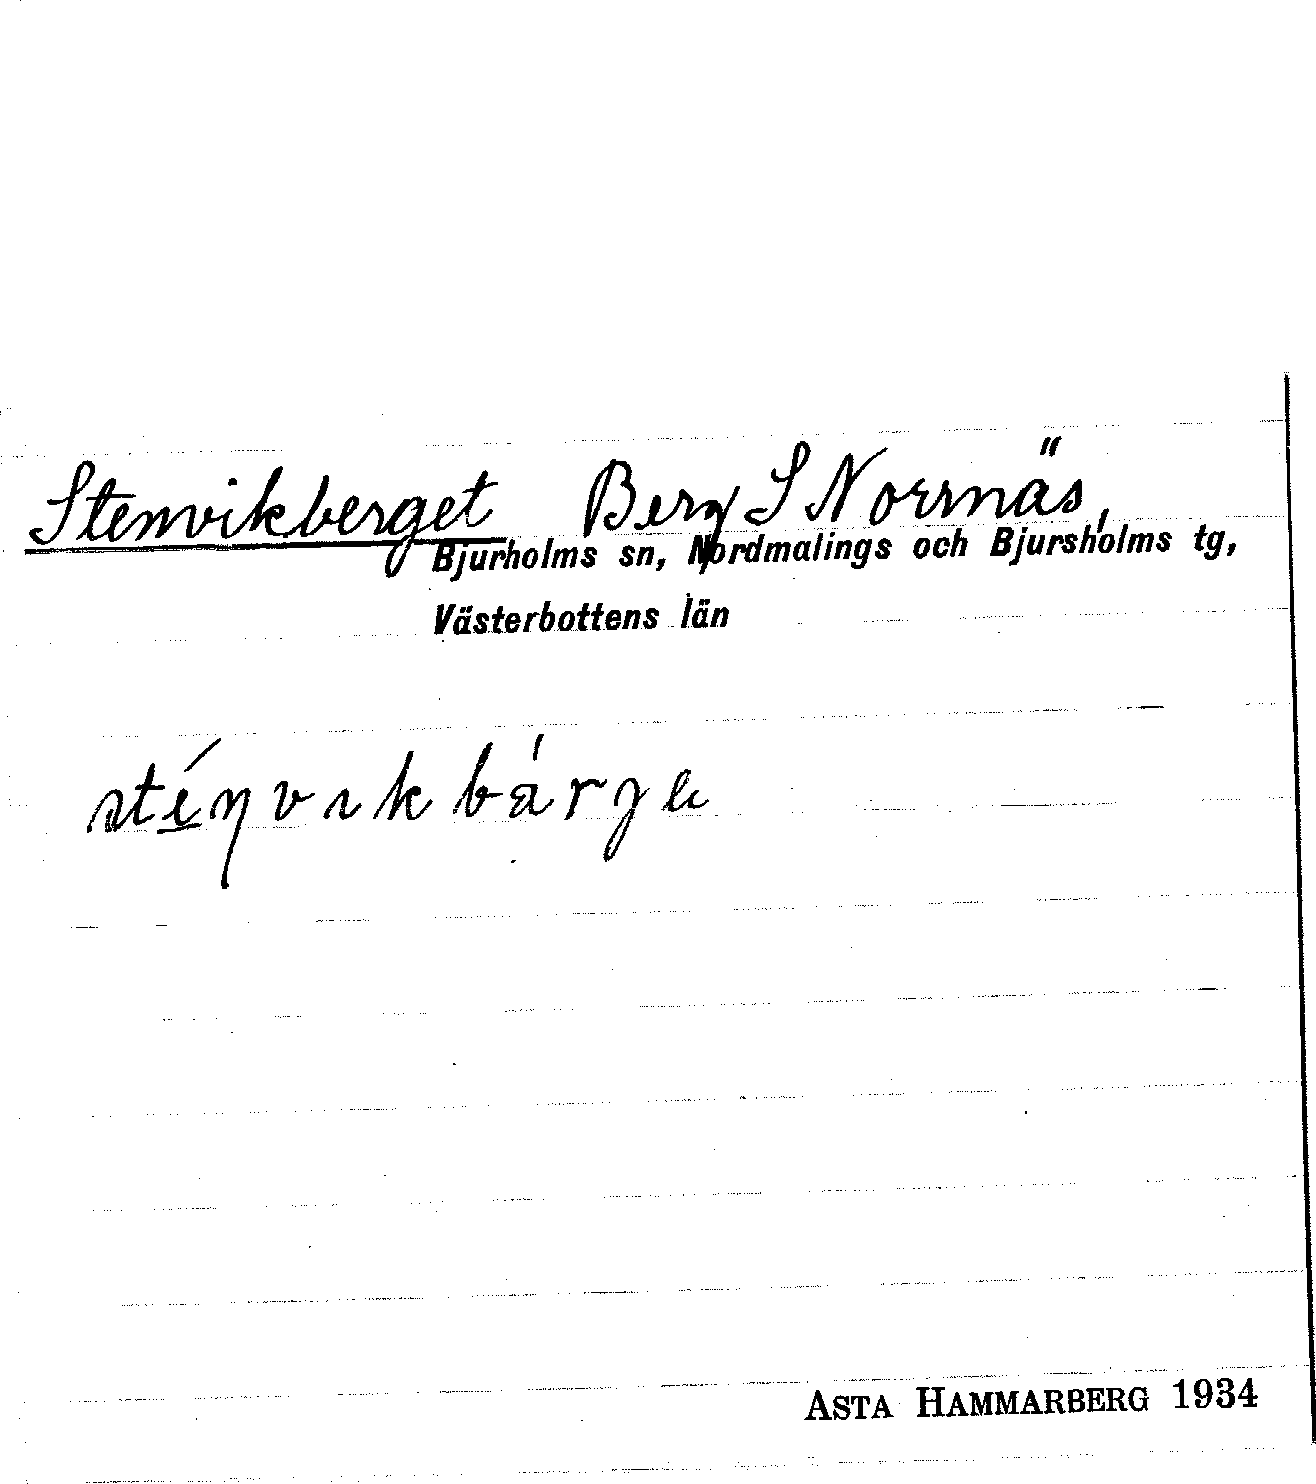 Stenvikberget Berg S Norrnäs,
Bjurholms sn, Nordmalings och Bjursholms tg,
Västerbottens län
sté̲ŋvıkbárgə
ASTA HAMMARBERG 1934